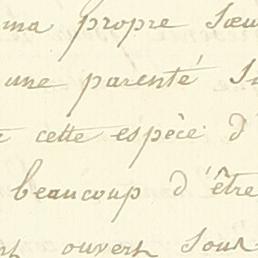 ma propre Sœu
une parenté Su
cette espèce d'
beaucoup d'être
ouvert sous